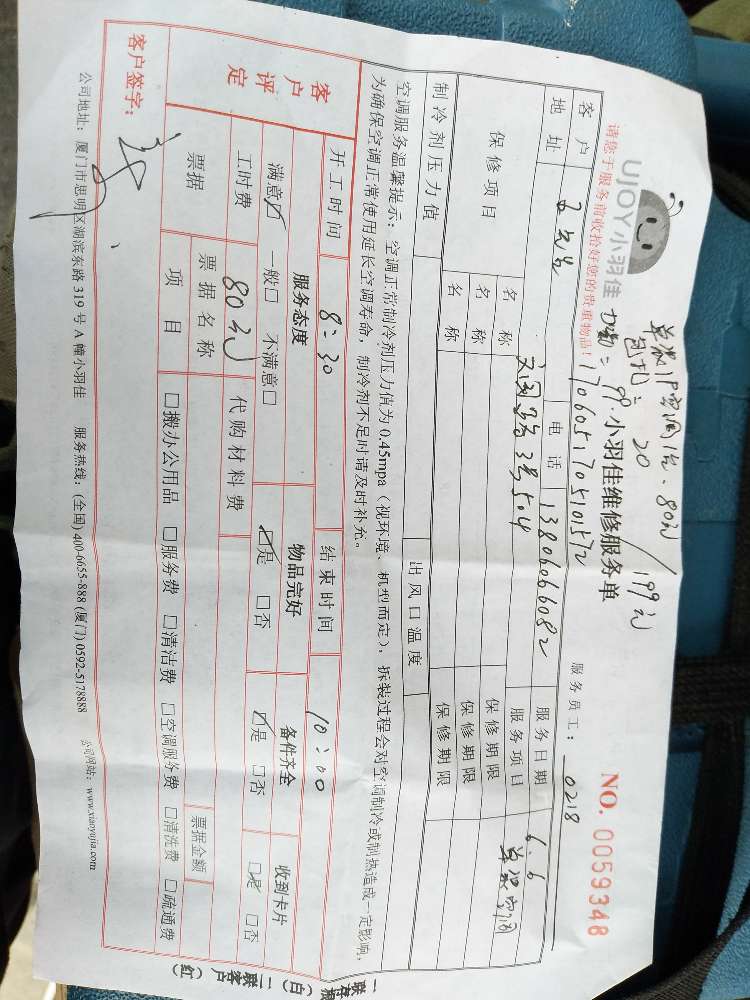 单裂1P空调洗·80元
包扎：20
内勤：99. / 199元
UJOY小羽佳
小羽佳维修服务单
NO. 0059348
请您于服务前收拾好您的贵重物品！
1706051705101572
服务员工： 0218
客户 王先生 电话 13806066082 服务日期 6.6
地址 文园路3号504 服务项目 单裂空调
保修项目 名称 保修期限
名称 保修期限
名称 保修期限
制冷剂压力值 出风口温度
空调服务温馨提示：空调正常制冷剂压力值为0.45mpa（视环境、机型而定），拆装过程会对空调制冷或制热造成一定影响，
为确保空调正常使用延长空调寿命，制冷剂不足时请及时补充。
开工时间 8:30 结束时间 10:00
客户评定
服务态度 物品完好 备件齐全 收到卡片
满意☑ 一般□ 不满意□ ☑是 □否 ☑是 □否 □是 □否
工时费 80元 代购材料费
票据 票据名称 票据金额
项目 □搬办公用品 □服务费 □清洁费 □空调服务费 □清洗费 □疏通费
客户签字：
公司地址：厦门市思明区湖滨东路319号A幢小羽佳 服务热线：(全国) 400-6655-888 (厦门) 0592-5178888 公司网站：www.xiaoyujia.com
(白) 二联客户 (红)